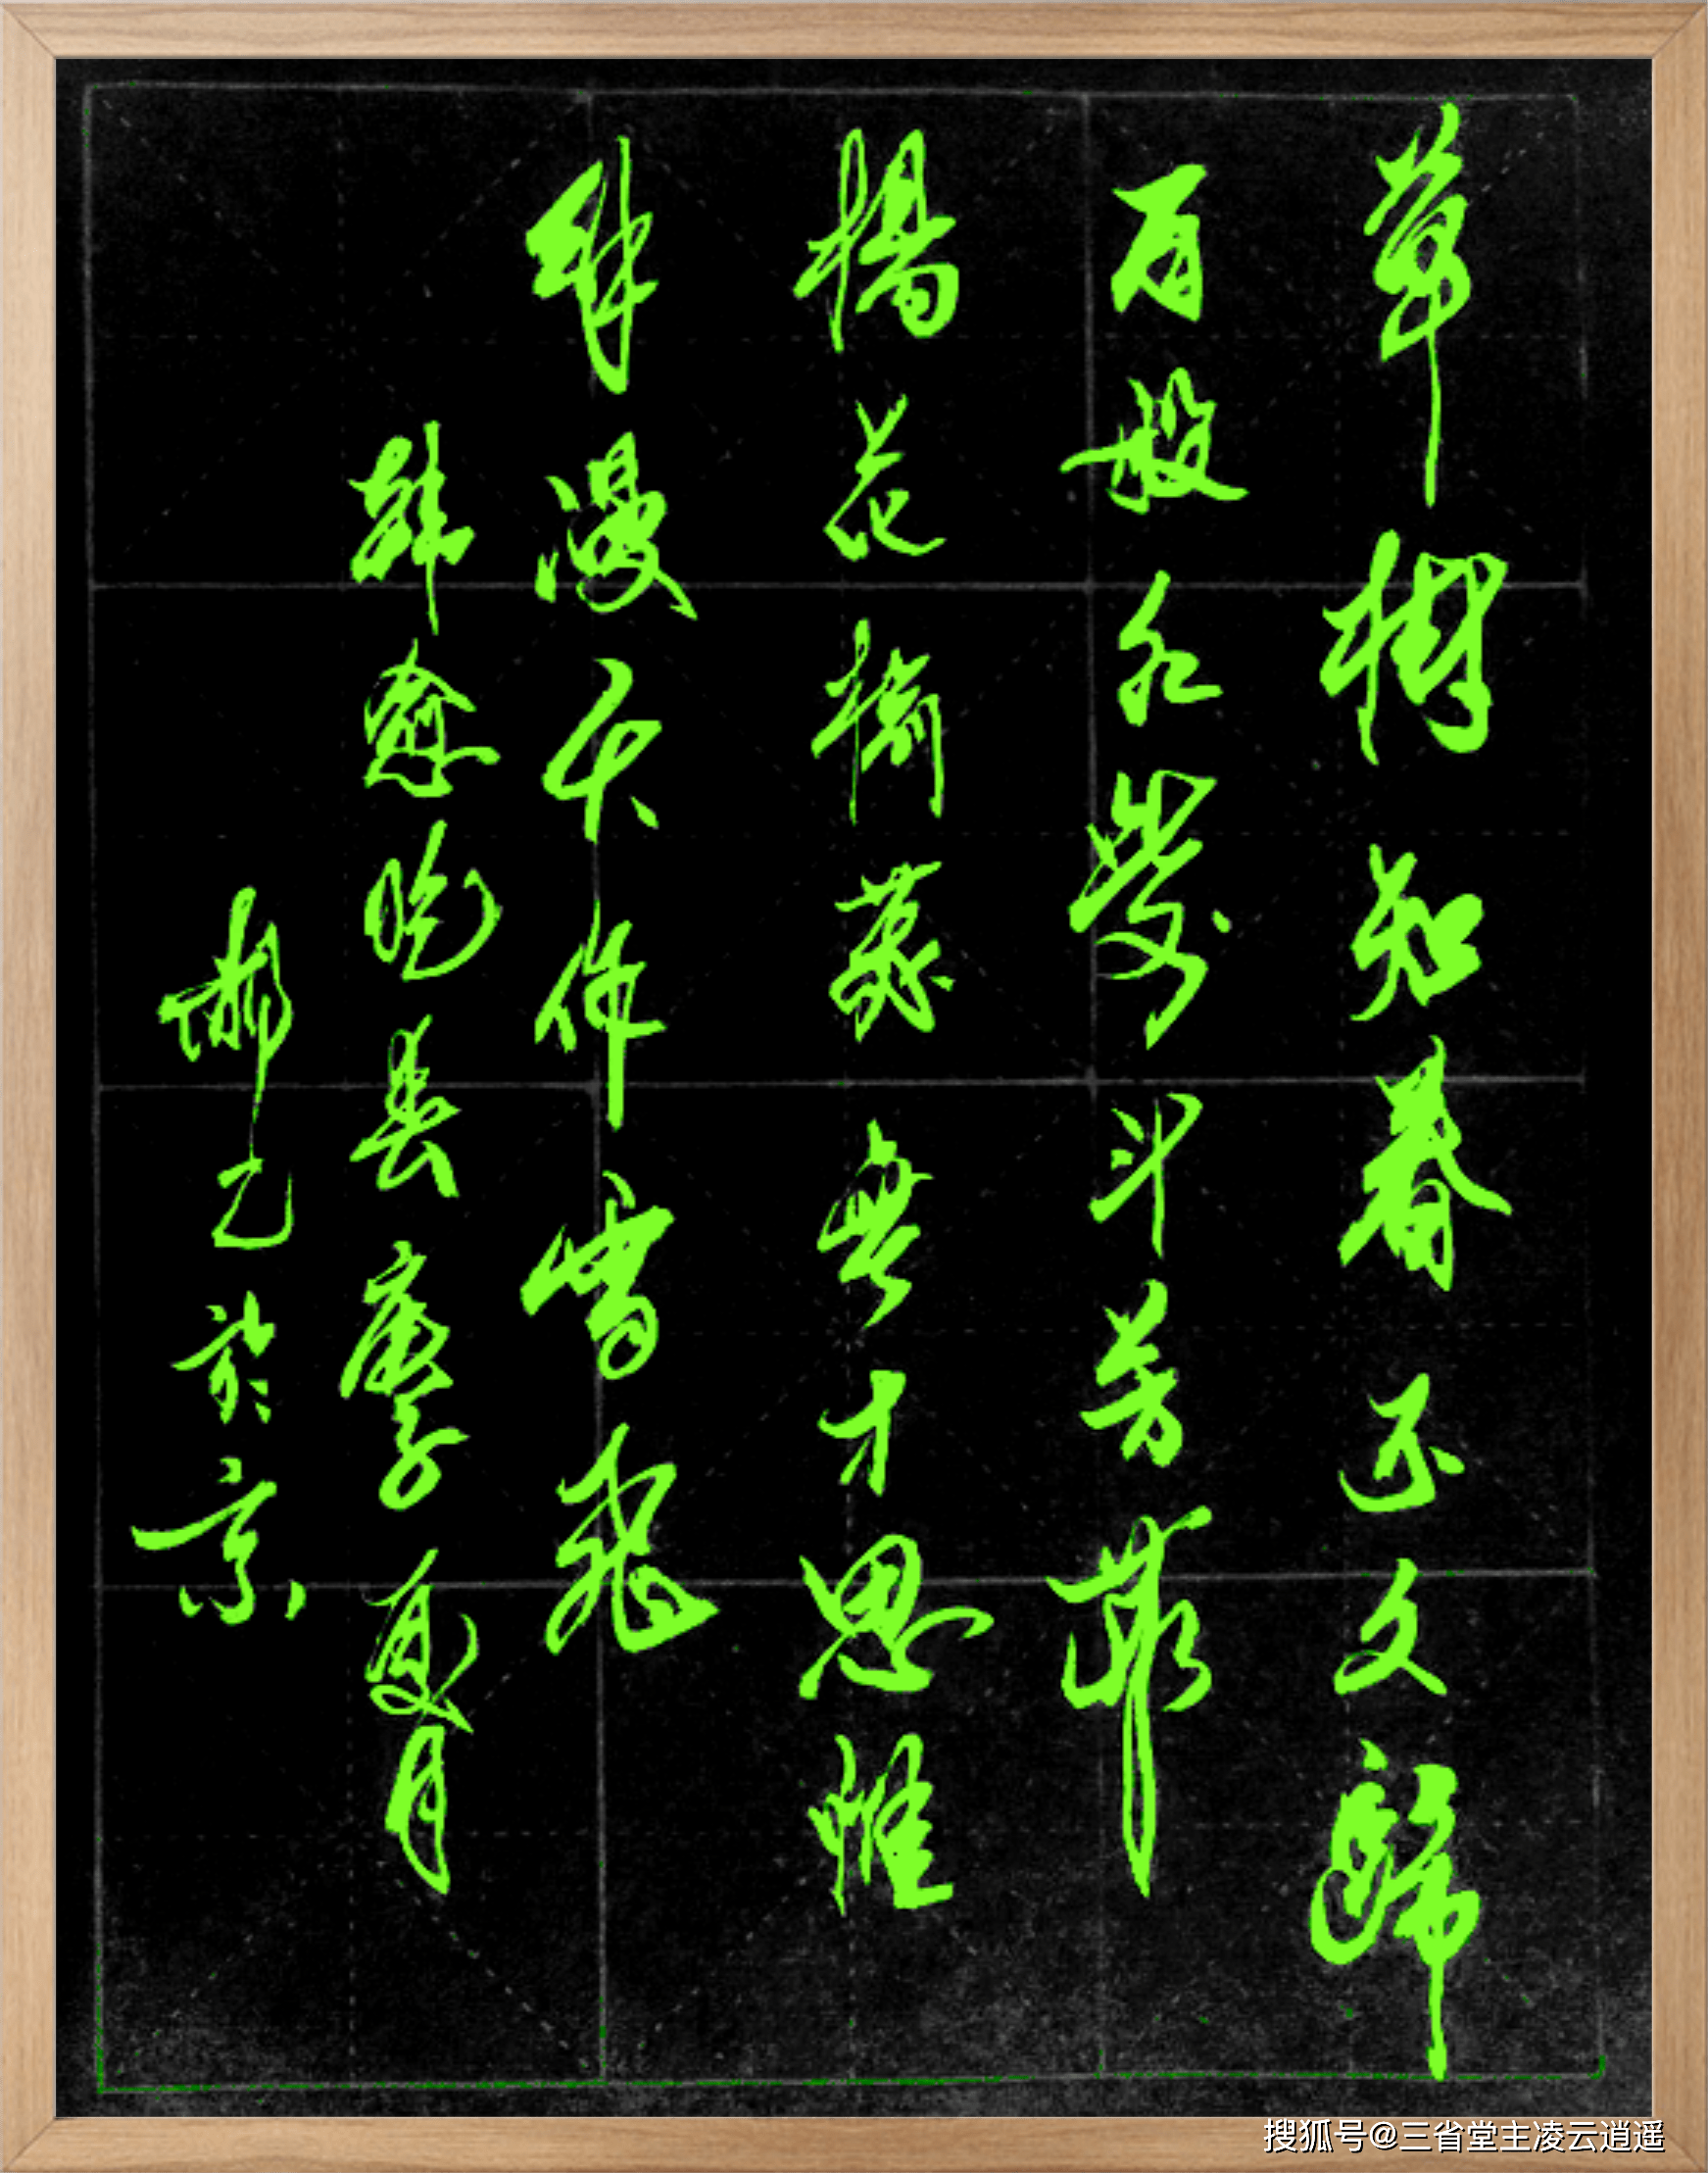 草樹知春不久歸
百般红紫斗芳菲
楊花榆莢無才思惟
解漫天作雪飛
韩愈晚春庚子夏月
乙於京
搜狐号@三省堂主凌云逍遥